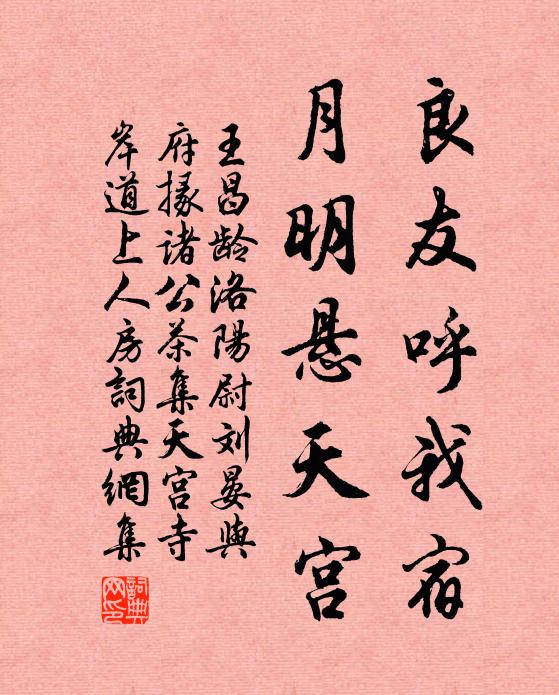 良友呼我宿
月明悬天宫
王昌龄洛陽尉刘晏與
府掾诸公茶集天宫寺
岸道上人房詞典網集
詞典網印